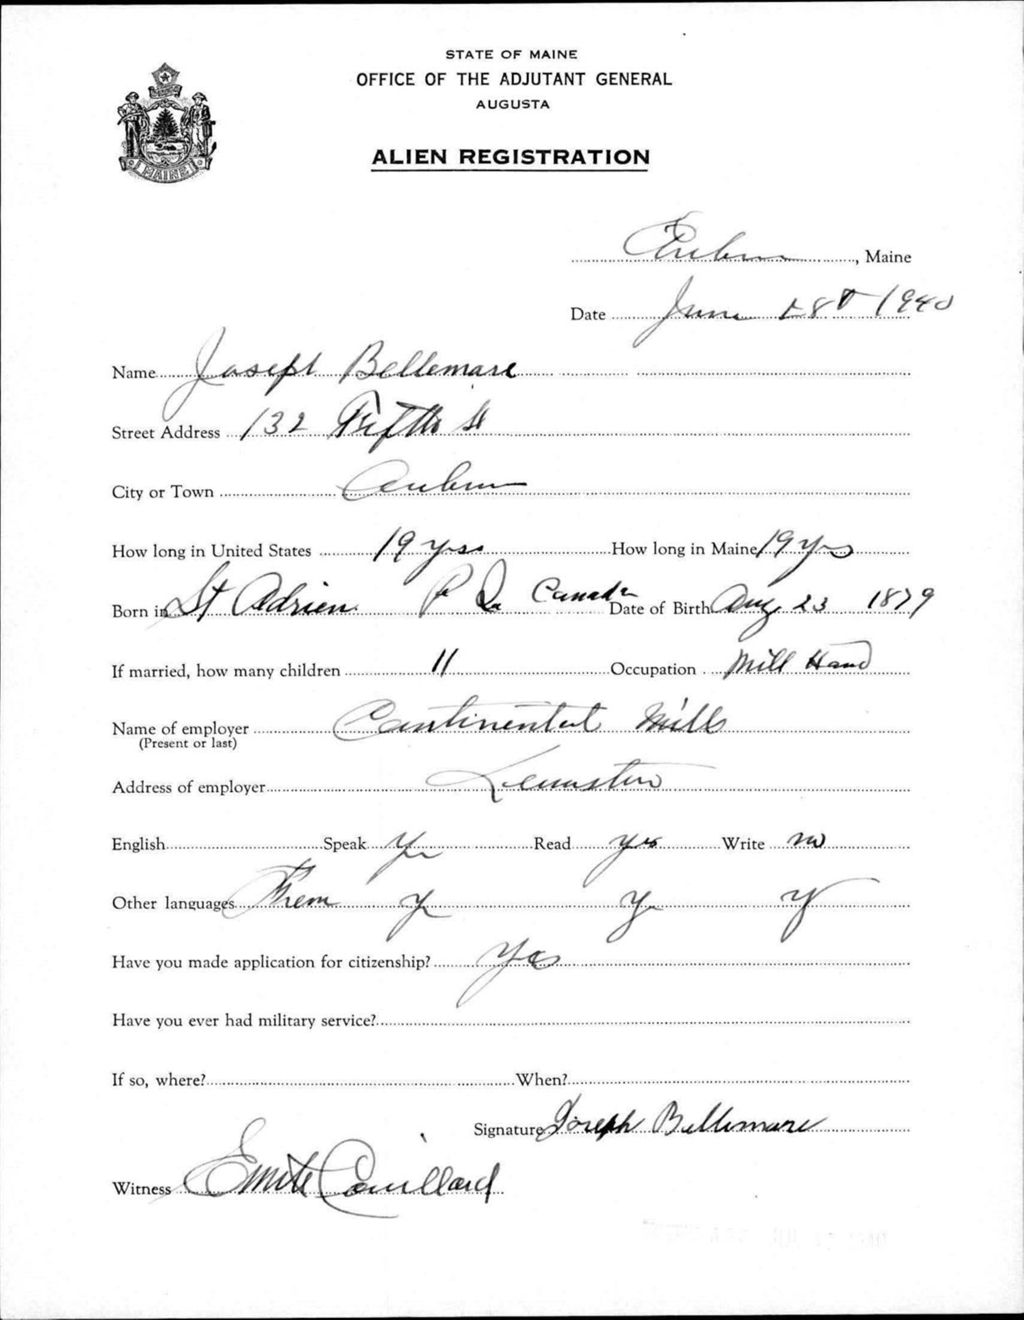 STATE OF MAINE
OFFICE OF THE ADJUTANT GENERAL
AUGUSTA
ALIEN REGISTRATION
MAINE
Auburn, Maine
Date June 28 1940
Name Joseph Bellemare
Street Address 132 Fifth St
City or Town Auburn
How long in United States 19 yrs. How long in Maine 19 yrs
Born in St Adrien P Q Canada Date of Birth Aug 23 1879
If married, how many children 11 Occupation Mill Hand
Name of employer Continental Mills
(Present or last)
Address of employer Lewiston
English Speak Yes Read yes Write no
Other languages y y y
Have you made application for citizenship? Yes
Have you ever had military service?
If so, where? When?
Signature Joseph Bellemare
Witness Couillard